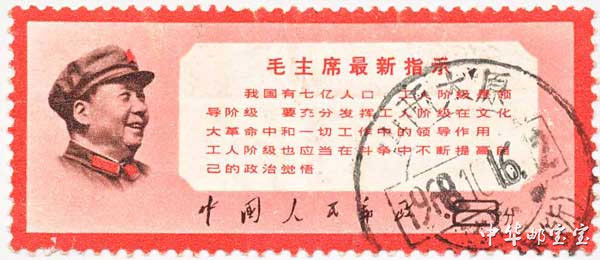 毛主席最新指示
我国有七亿人口 工人阶级是领
导阶级 要充分发挥工人阶级在文化
大革命中和一切工作中的领导作用
工人阶级也应当在斗争中不断提高自
己的政治觉悟
中国人民邮政 分
太原
1968.10.16.
中华邮宝宝